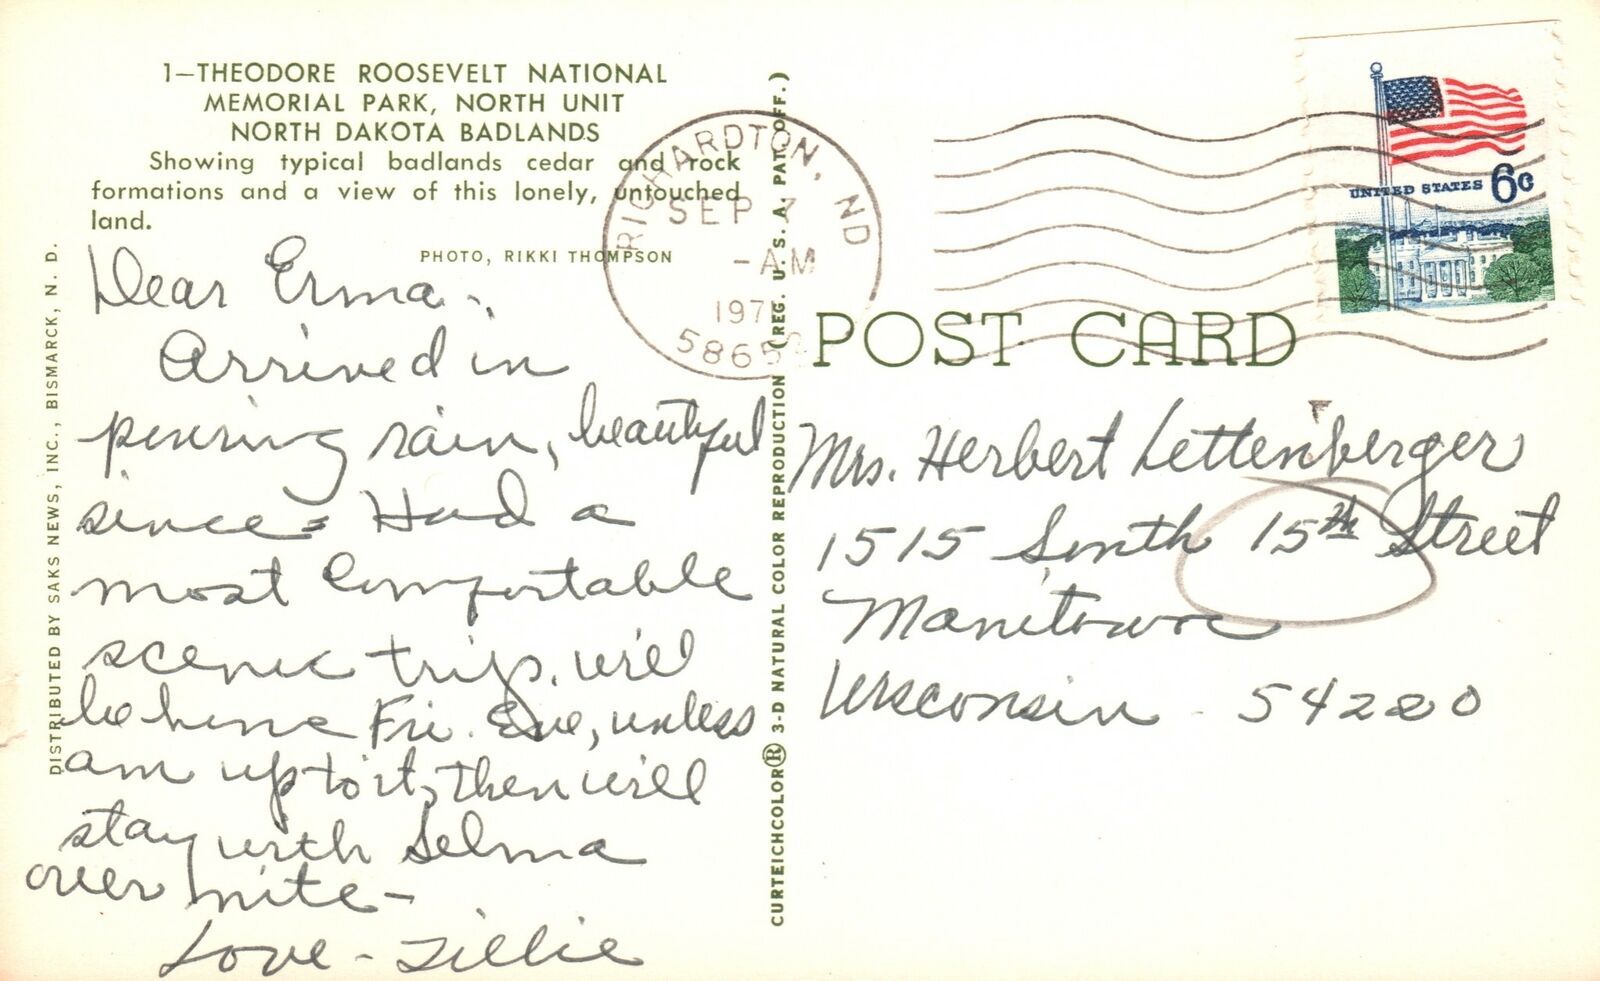 1—THEODORE ROOSEVELT NATIONAL
MEMORIAL PARK, NORTH UNIT
NORTH DAKOTA BADLANDS
Showing typical badlands cedar and rock
formations and a view of this lonely, untouched
land.
PHOTO, RIKKI THOMPSON
DISTRIBUTED BY SAKS NEWS, INC., BISMARCK, N. D.
Dear Erma -,
Arrived in
pouring rain, beautiful
since - Had a
most comfortable
scenic trip. will
be home Fri. Eve, unless
am up to it, then will
stay with Selma
over nite -
Love - Tillie
CURTEICHCOLOR® 3-D NATURAL COLOR REPRODUCTION (REG. U. S. A. PAT. OFF.)
RICHARDTON, ND
SEP 7
-AM
197
5865
UNITED STATES 6c
POST CARD
Mrs. Herbert Lettenberger
1515 South 15th Street
Manitowoc
Wisconsin - 54220